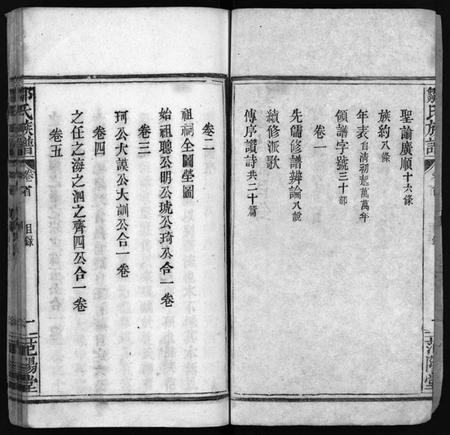 鄒氏族譜
聖諭廣順十六條
族約八條
年表自清初起萬萬年
領譜字號三十部
卷一
先儒修譜辨論八說
續修派歌
傳序讚詩共二十篇
范陽堂
卷二
祖祠全圖塋圖
始祖聰公明公琥公琦公合一卷
卷三
珂公大謨公大訓公合一卷
卷四
之任之海之泗之齊四公合一卷
卷五
鄒氏族譜
卷首
目錄
一
范陽堂